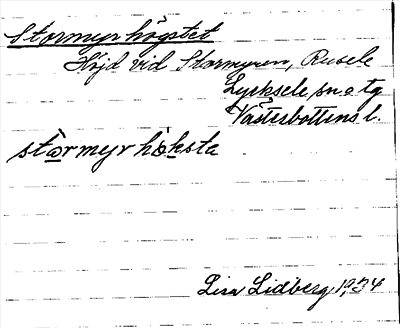 Stormyrhögstet
Höjd vid Stormyren, Rusele
Lycksele sn. o tg
Västerbottens l.
stærmyrhöksta
Lisa Lidberg 1934